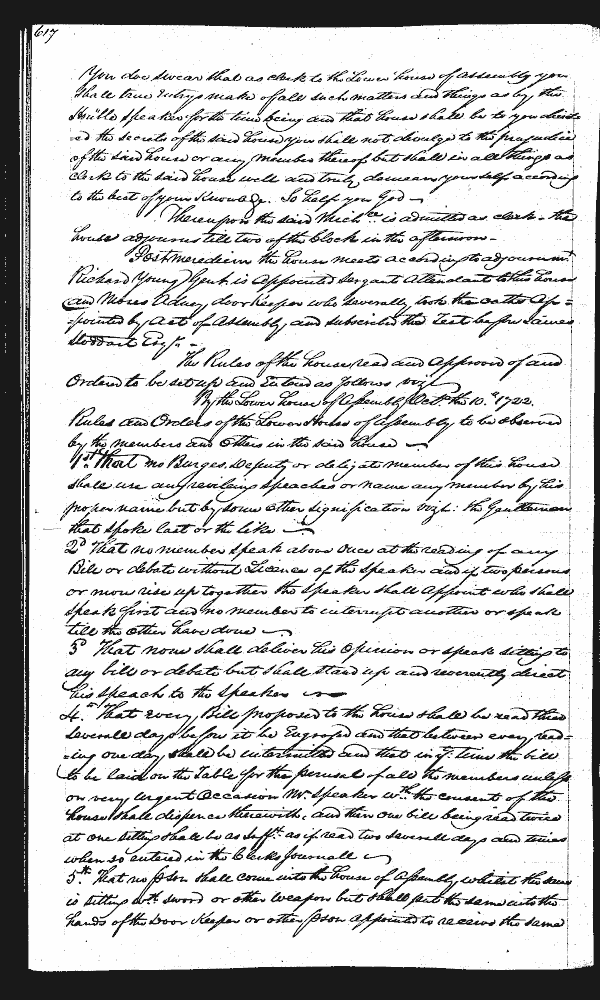 617
You doe swear that as clerk to the Lower house of assembly you
Shall true Entrys make of all such matters and things as by the
Speaker for the time being and that house shall be to you
ed the secrets of the said house you shall not divulge to the prejudice
of the said house or any member thereof but shall in all things as
Clerk to the said house well and truly demean yourself according
to the best of your Knowledge. So help you God
Thereupon the said is admitted as clerk - the
house adjourns till two of the Clock in the afternoon -
Post meredium the house meets according to adjournmt
Richard Young Gent. is Appointed Sergant Attendant to this house
and Moses Adney door keeper who severally took the oaths Ap=
=pointed by Act of Assembly and subscribed the Test before James
Stoddart Esqr. -
The Rules of the house read and Approved of and
Ordered to be set up and Entred as follows vizt
By the Lower house of Assembly Octr. the 10th 1722.
Rules and Orders of the Lower House of Assembly to be observed
by the members and others in the said house
1st That no Burges, Deputy or delegate member of this house
shall use any reviling speaches or name any member by his
proper name but by some other signification vizt: the Gentleman
that spoke last or the like
2d That no member speak above once at the reading of any
Bill or debate without Licence of the Speaker and if two persons
or more rise up together the Speaker shall Appoint who shall
speak first and no member to interrupt another or speak
till the other have done
3d That none shall deliver his Opinion or speak sitting to
any bill or debate but shall stand up and reverently direct
his speach to the Speaker
4th That every Bill proposed to the house shall be read three
severall days before it be Engrossed and that between every read=
=ing one day shall be intermitted and that in ye time the bill
to be laid on the Table for the perusal of all the members unless
on very urgent Occasion Mr Speaker wth the consent of the
house shall dispence therewith, and then one bill being read twice
at one sitting shall be as sufft. as if read two severall days and times
when so entered in the Clerks Journall
5th That no pson shall come into the house of Assembly whilst the same
is sitting wth sword or other weapon but shall put the same into the
hands of the Door Keeper or other pson appointed to receive the same